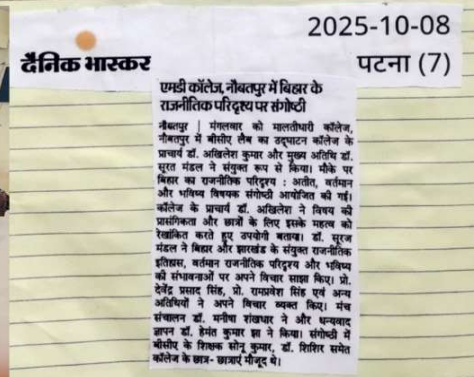 2025-10-08
दैनिक भास्कर
पटना (7)
एमडी कॉलेज, नौबतपुर में बिहार के
राजनीतिक परिदृश्य पर संगोष्ठी
नौबतपुर | मंगलवार को मालतीधारी कॉलेज,
नौबतपुर में बीसीए लैब का उद्घाटन कॉलेज के
प्राचार्य डॉ. अखिलेश कुमार और मुख्य अतिथि डॉ.
सूरत मंडल ने संयुक्त रूप से किया। मौके पर
बिहार का राजनीतिक परिदृश्य : अतीत, वर्तमान
और भविष्य विषयक संगोष्ठी आयोजित की गई।
कॉलेज के प्राचार्य डॉ. अखिलेश ने विषय की
प्रासंगिकता और छात्रों के लिए इसके महत्व को
रेखांकित करते हुए उपयोगी बताया। डॉ. सूरज
मंडल ने बिहार और झारखंड के संयुक्त राजनीतिक
इतिहास, वर्तमान राजनीतिक परिदृश्य और भविष्य
की संभावनाओं पर अपने विचार साझा किए। प्रो.
देवेंद्र प्रसाद सिंह, प्रो. रामप्रवेश सिंह एवं अन्य
अतिथियों ने अपने विचार व्यक्त किए। मंच
संचालन डॉ. मनीषा शंखधार ने और धन्यवाद
ज्ञापन डॉ. हेमंत कुमार झा ने किया। संगोष्ठी में
बीसीए के शिक्षक सोनू कुमार, डॉ. शिशिर समेत
कॉलेज के छात्र- छात्राएं मौजूद थे।